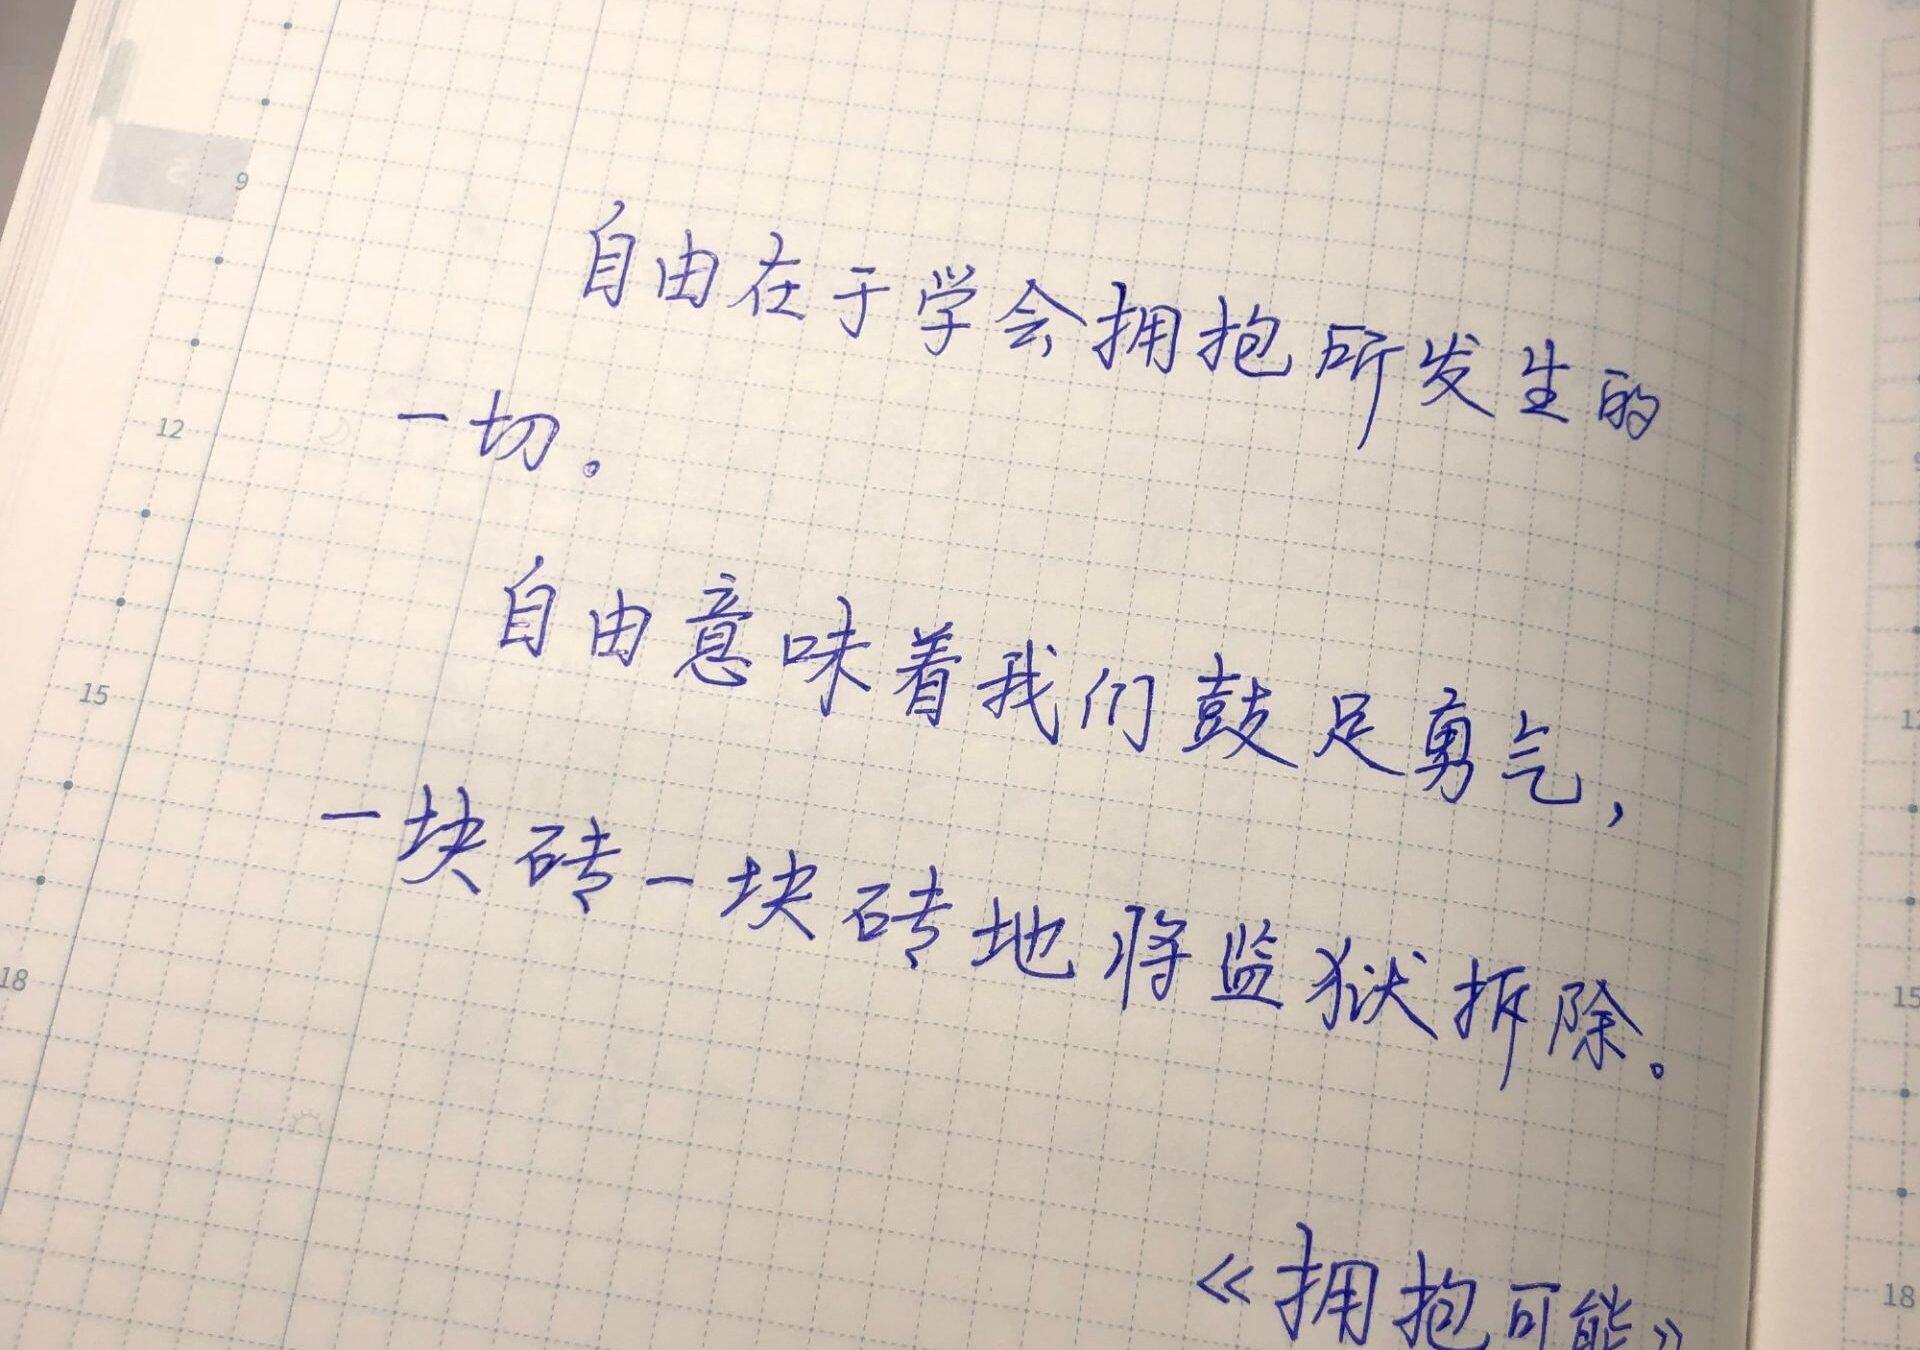 9
自由在于学会拥抱所发生的
12
一切.
自由意味着我们鼓足勇气,
15
一块砖一块砖地将监狱拆除。
18
《拥抱可能》
15
18